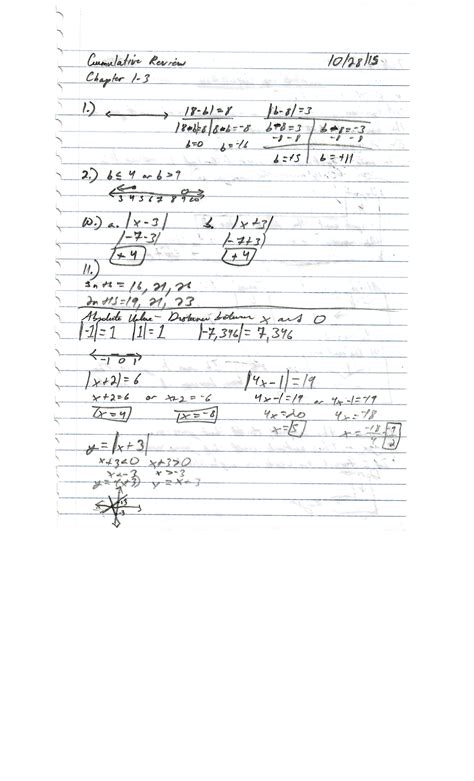 Cumulative Review 10/28/15
Chapter 1-3
1.) |8-b|=8 |b-8|=3
b=0 b=-16 b=+5 b=+11
2.) b≤4 or b>9
3 4 5 6 7 8 9 10
10.) a. |x-3| b. |x+3|
|-7-3| |-7+3|
+4 +4
11.)
3n+1=16, 21, 26
2n+13=19, 21, 23
Absolute Value - Distance between x and 0
|-1|=1 |1|=1 |-7,396|=7,396
-1 0 1
|x+2|=6 |4x-1|=19
x+2=6 or x+2=-6 4x-1=19 or 4x-1=-19
x=4 x=-8 4x=20 4x=-18
x=5 x=-18/4 -9/2
y=|x+3|
x+3<0 x+3>0
x<-3 x>-3